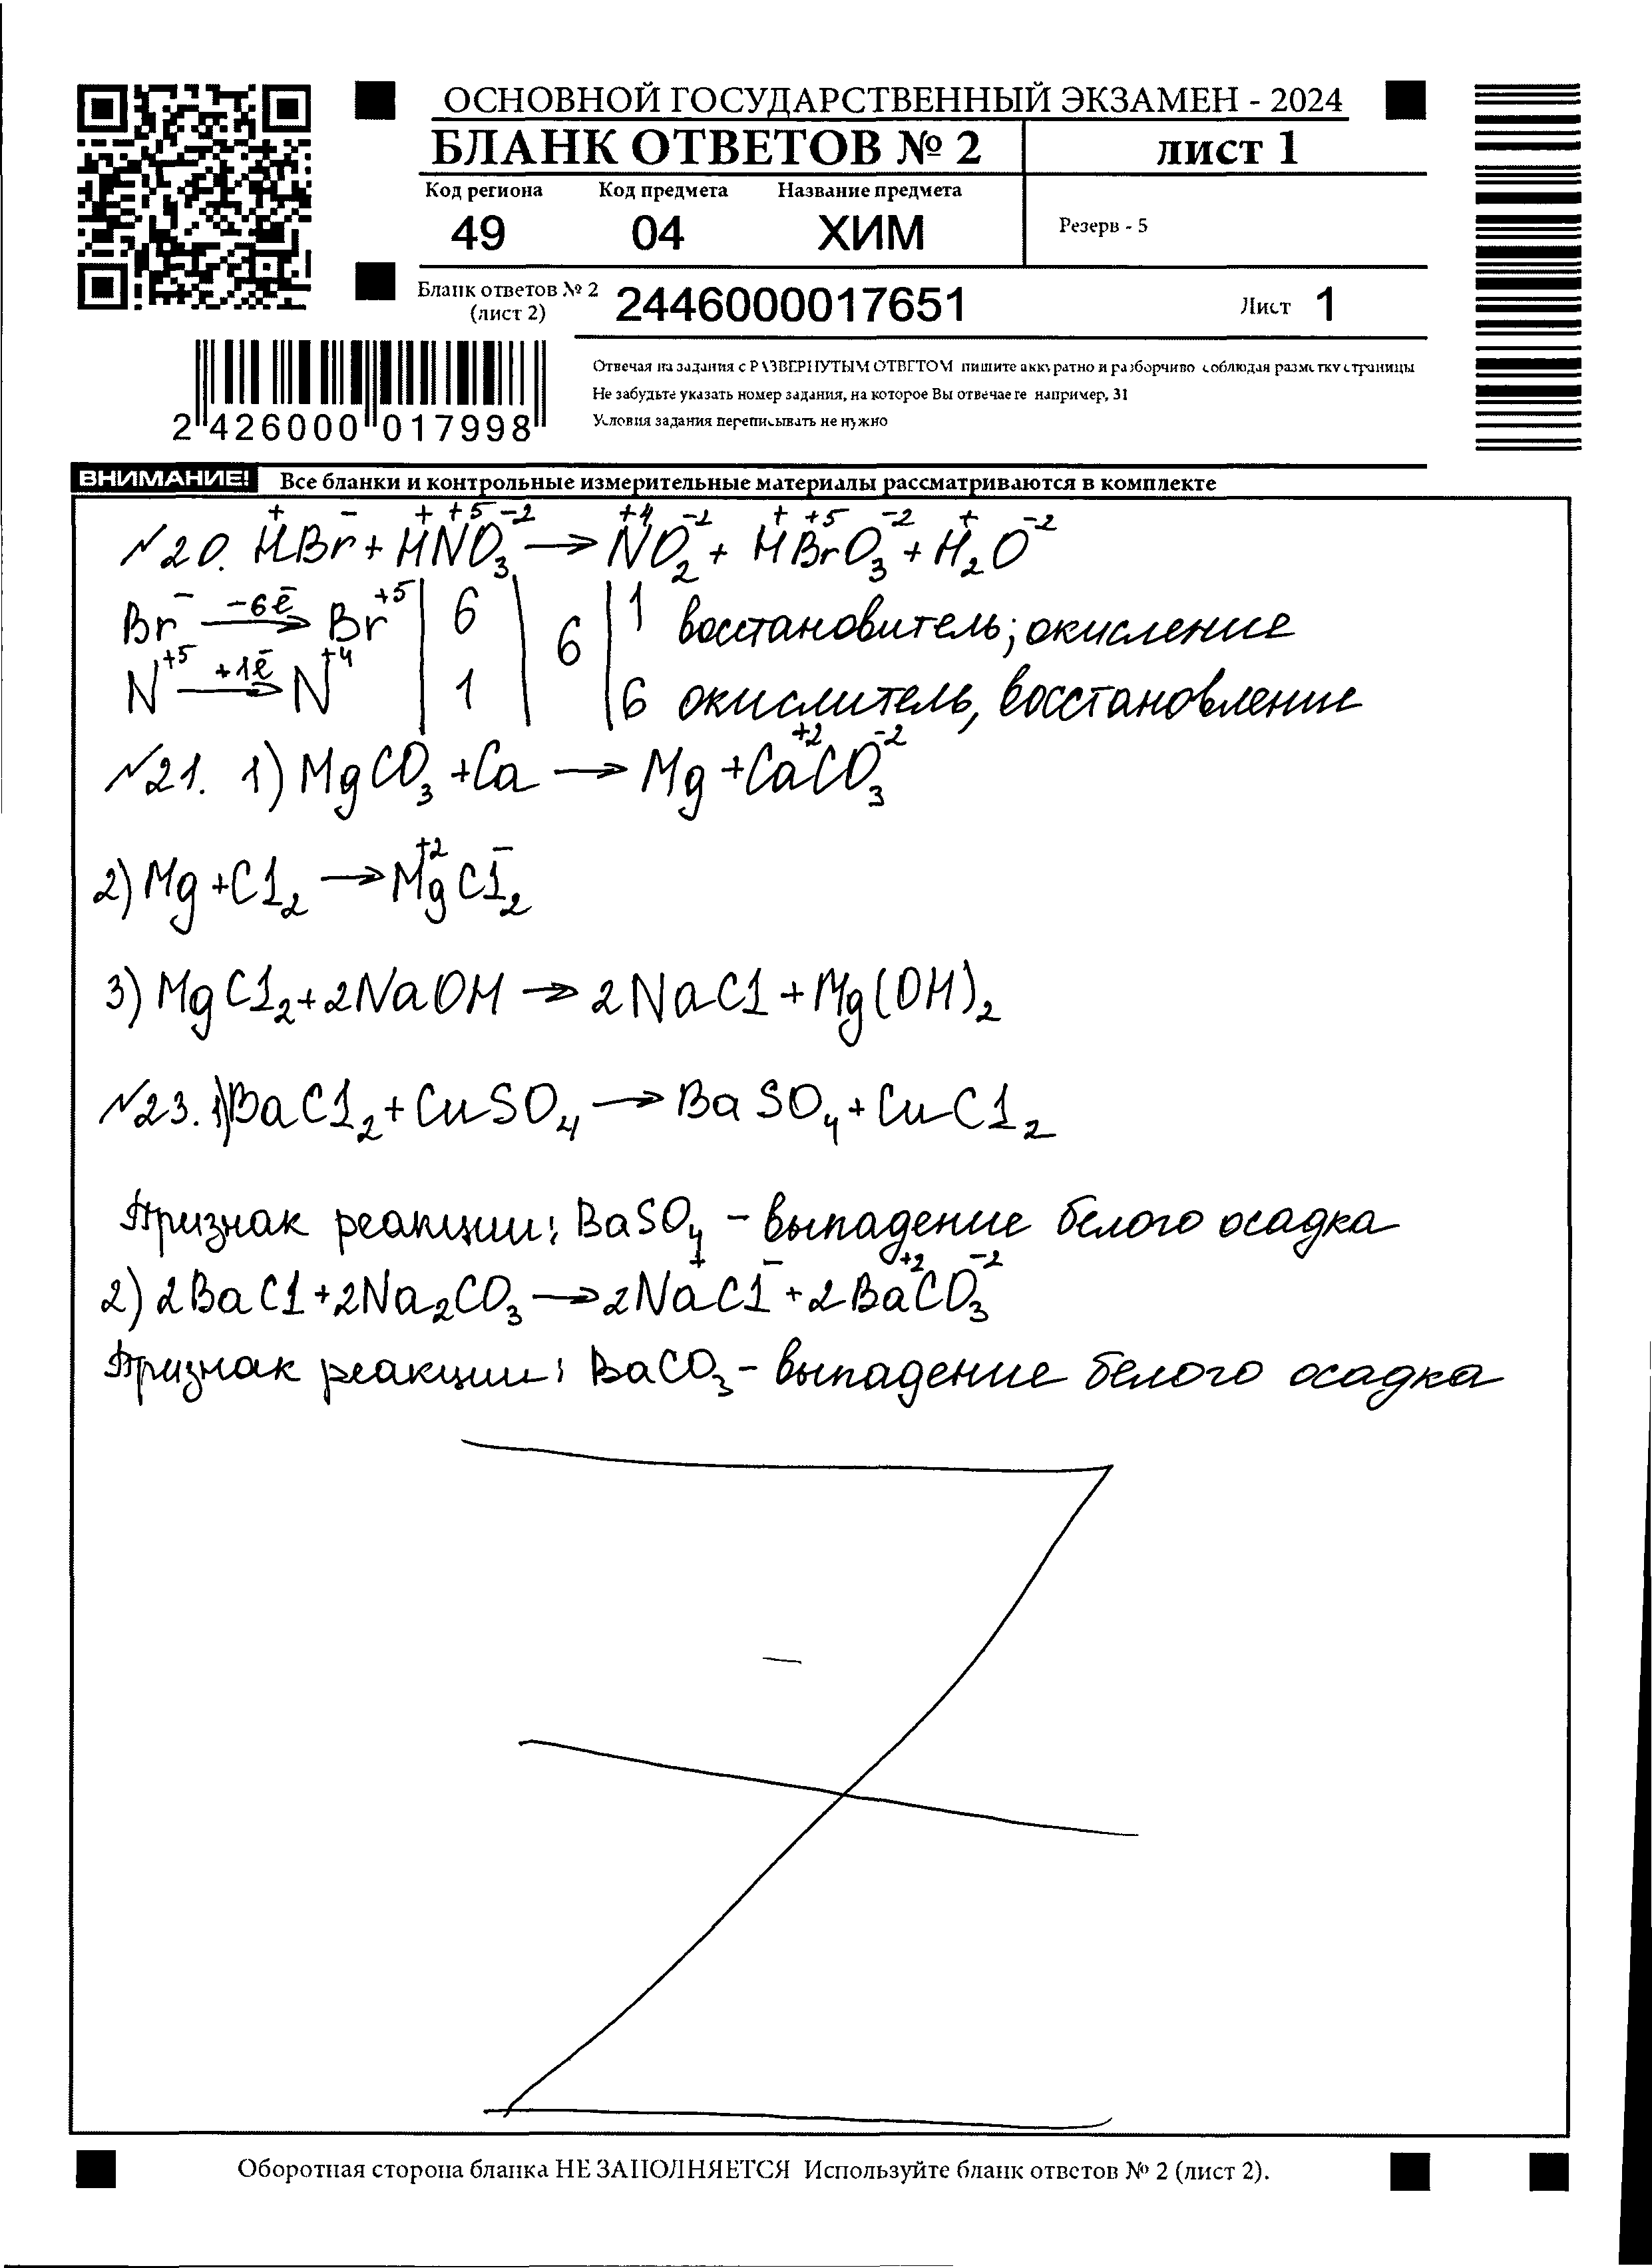 ОСНОВНОЙ ГОСУДАРСТВЕННЫЙ ЭКЗАМЕН - 2024
БЛАНК ОТВЕТОВ № 2 лист 1
Код региона Код предмета Название предмета
49 04 ХИМ Резерв - 5
Бланк ответов № 2 (лист 2) 2446000017651 Лист 1
Отвечая на задания с РАЗВЕРНУТЫМ ОТВЕТОМ пишите аккуратно и разборчиво соблюдая разметку страницы
Не забудьте указать номер задания, на которое Вы отвечаете например, 31
Условия задания переписывать не нужно
2 426000 017998
ВНИМАНИЕ! Все бланки и контрольные измерительные материалы рассматриваются в комплекте
№20. H⁺Br⁻ + H⁺N⁺⁵O₃⁻² → N⁺⁴O₂⁻² + H⁺Br⁺⁵O₃⁻² + H₂⁺O⁻²
Br⁻ –6ē→ Br⁺⁵ | 6 | 6 | 1 восстановитель; окисление
N⁺⁵ +1ē→ N⁺⁴ | 1 | | 6 окислитель, восстановление
№21. 1) MgCO₃ + Ca → Mg + Ca⁺²CO₃⁻²
2) Mg + Cl₂ → Mg⁺²Cl₂⁻
3) MgCl₂ + 2NaOH → 2NaCl + Mg(OH)₂
№23. 1) BaCl₂ + CuSO₄ → BaSO₄ + CuCl₂
Признак реакции: BaSO₄ – выпадение белого осадка
2) 2BaCl + 2Na₂CO₃ → 2Na⁺Cl⁻ + 2Ba⁺²CO₃⁻²
Признак реакции: BaCO₃ – выпадение белого осадка
Оборотная сторона бланка НЕ ЗАПОЛНЯЕТСЯ Используйте бланк ответов № 2 (лист 2).